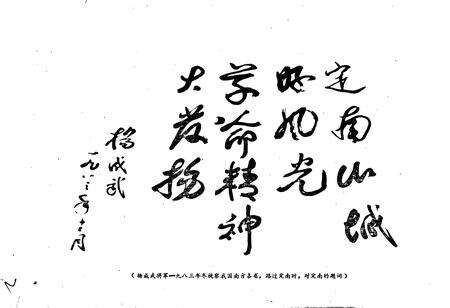 定南山城
风光
革命精神
大发扬
杨成武
一九八三年十二月
（杨成武将军一九八三年冬视察我国南方各省，路过定南时，对定南的题词）